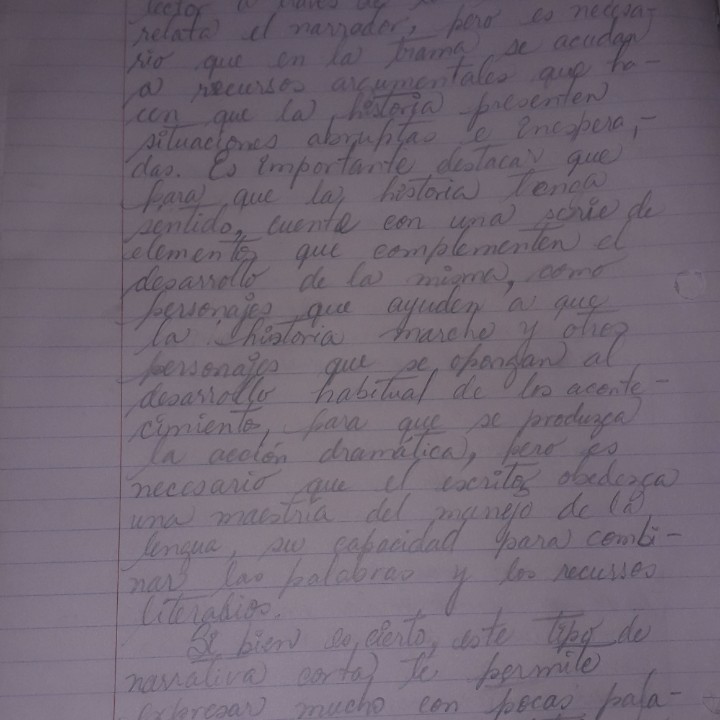 lector a través de
relata el narrador, pero es necesa-
rio que en la trama se acudan
a recursos argumentales que ha-
cen que la historia presenten
situaciones abruptas e inespera-
das. Es importante destacar que
para que la historia tenga
sentido, cuente con una serie de
elementos que complementen el
desarrollo de la misma, como
personajes que ayuden a que
la historia marche y otros
personajes que se opongan al
desarrollo habitual de los aconte-
cimientos, para que se produzca
la acción dramática, pero es
necesario que el escritor obedezca
una maestría del manejo de la
lengua, su capacidad para combi-
nar las palabras y los recursos
literarios.
Si bien es cierto, este tipo de
narrativa corta te permite
expresar mucho con pocas pala-